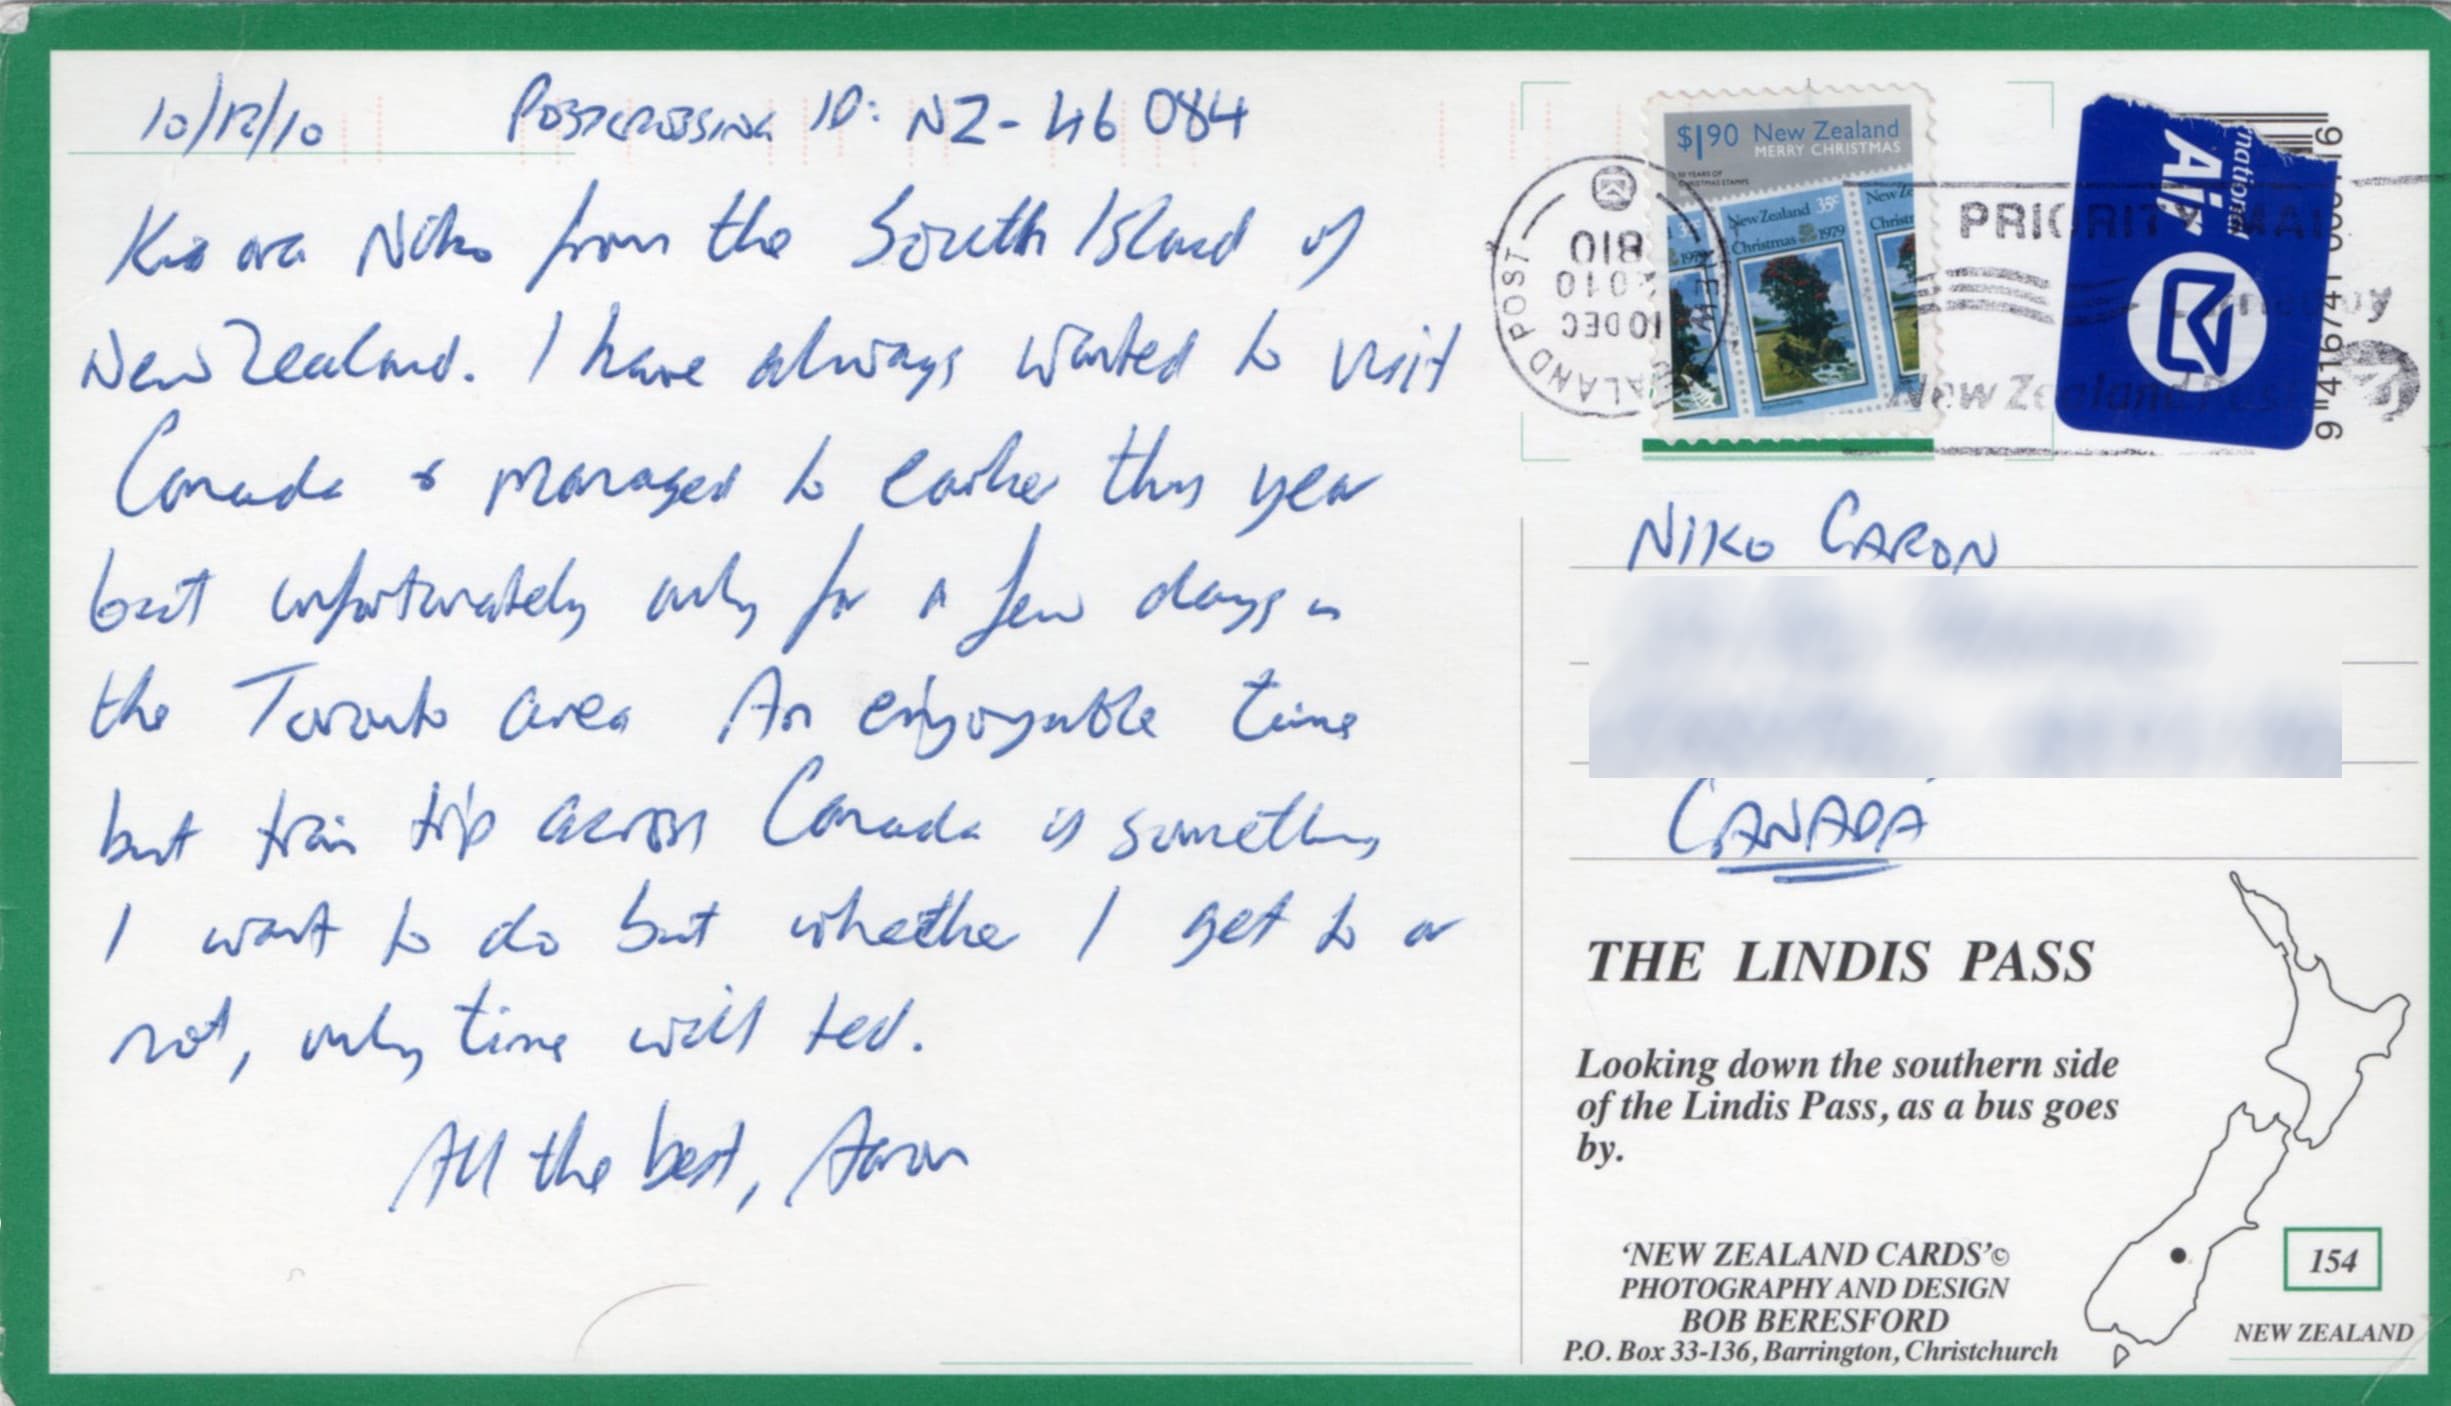 10/12/10 Postcrossing ID: NZ-46084
Kia ora Niko from the South Island of
New Zealand. I have always wanted to visit
Canada & managed to earlier this year
but unfortunately only for a few days in
the Toronto area An enjoyable time
but train trip across Canada is something
I want to do but whether I get to or
not, only time will tell.
All the best, Aaron
$1.90 New Zealand
MERRY CHRISTMAS
50 YEARS OF
CHRISTMAS STAMPS
New Zealand 35c
Christmas 1979
NEW ZEALAND POST
10 DEC
2010
810
PRIORITY MAIL
New Zealand Post
national
Air
NIKO CARON
CANADA
THE LINDIS PASS
Looking down the southern side
of the Lindis Pass, as a bus goes
by.
'NEW ZEALAND CARDS'©
PHOTOGRAPHY AND DESIGN
BOB BERESFORD
P.O. Box 33-136, Barrington, Christchurch
154
NEW ZEALAND